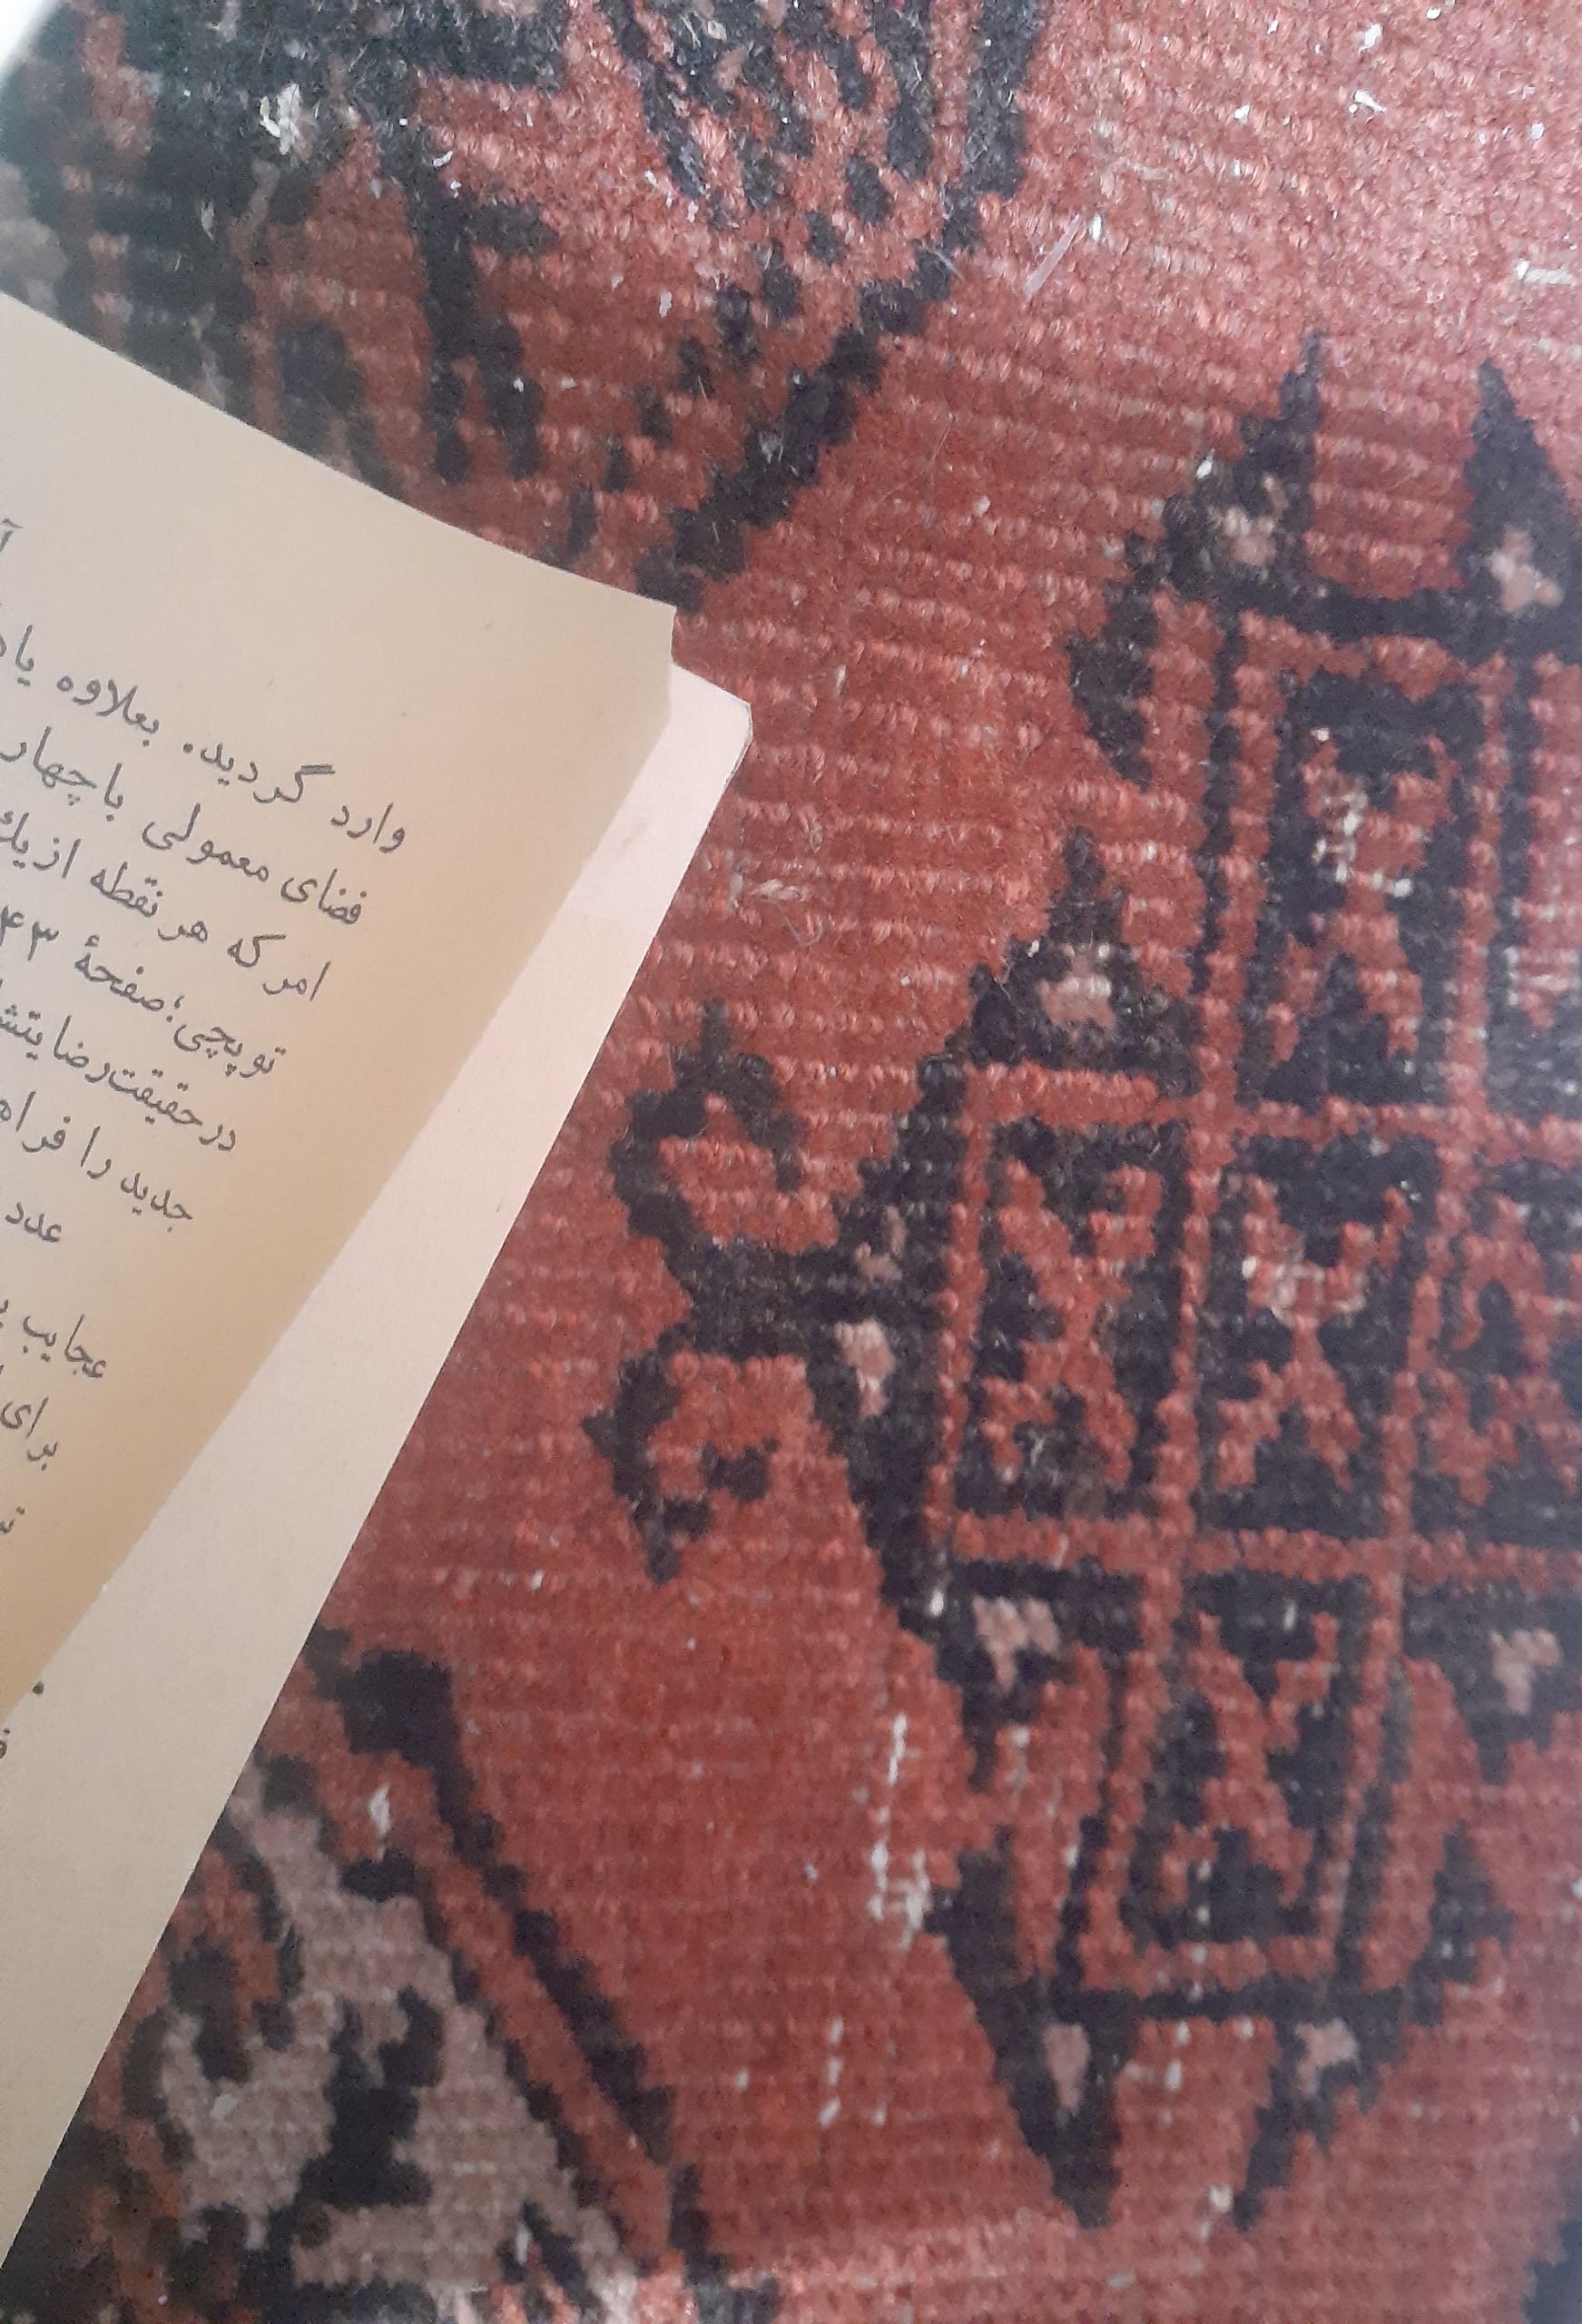 وارد گردید. بعلاوه
فضای معمولی باچهار
امر که هر نقطه ازیك
توپچی؛صفحهٔ ۴۳
درحقیقت‌رضایت
جدید را
عدد
عجایب
برای